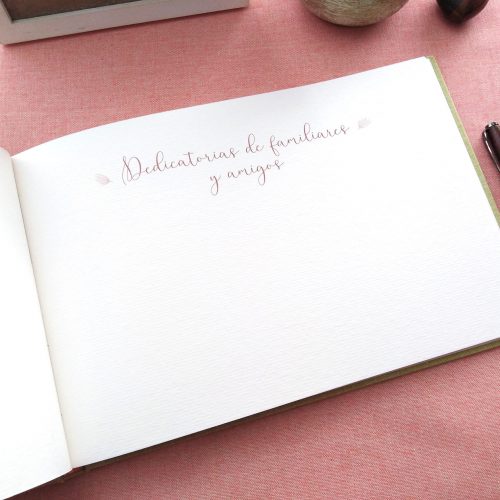 Dedicatorias de familiares
y amigos